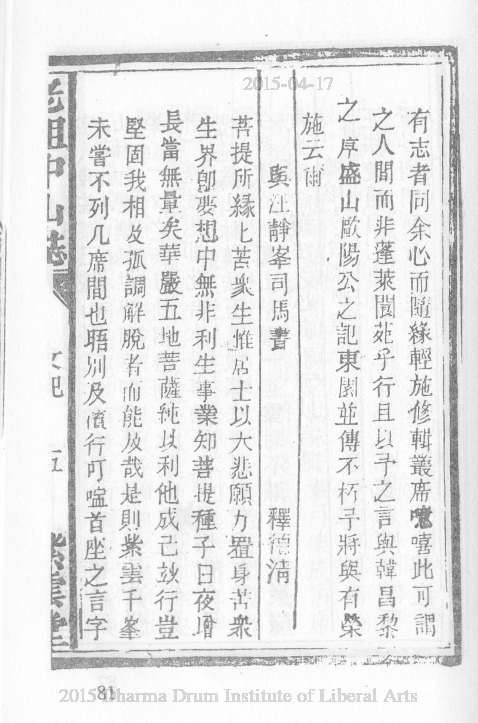 2015-04-17
有志者同余心而隨緣輕施修輯叢席噫嘻此可謂
之人間而非蓬萊閬苑乎行且以予之言與韓昌黎
之序盛山歐陽公之記東園並傳不朽予將與有榮
施云爾
與汪靜峯司馬書 釋德清
菩提所緣上苦衆生惟居士以大悲願力置身苦衆
生界卽妄想中無非利生事業知菩提種子日夜增
長當無量矣華嚴五地菩薩純以利他成己玅行豈
堅固我相及孤調解脫者而能及哉是則紫雲千峯
未嘗不列几席間也晤別及濱行叮嚀首座之言字
老祖中山誌 文紀 五 紫雲堂
81
2015 Dharma Drum Institute of Liberal Arts